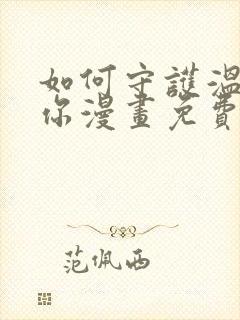 如何守護溫
你漫畫免費
范佩西